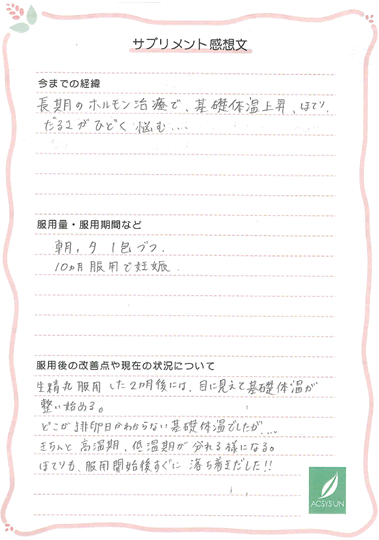 サプリメント感想文
今までの経緯
長期のホルモン治療で、基礎体温上昇、ほてり、
だるさがひどく悩む…
服用量・服用期間など
朝、夕 1包づつ.
10ヵ月服用で妊娠.
服用後の改善点や現在の状況について
生精丸服用した2ヵ月後には、目に見えて基礎体温が
整い始める。
どこが排卵日かわからない基礎体温でしたが….
きちんと高温期、低温期が分れる様になる。
ほてりも、服用開始後すぐに落ち着きだした!!
ACSYS'UN